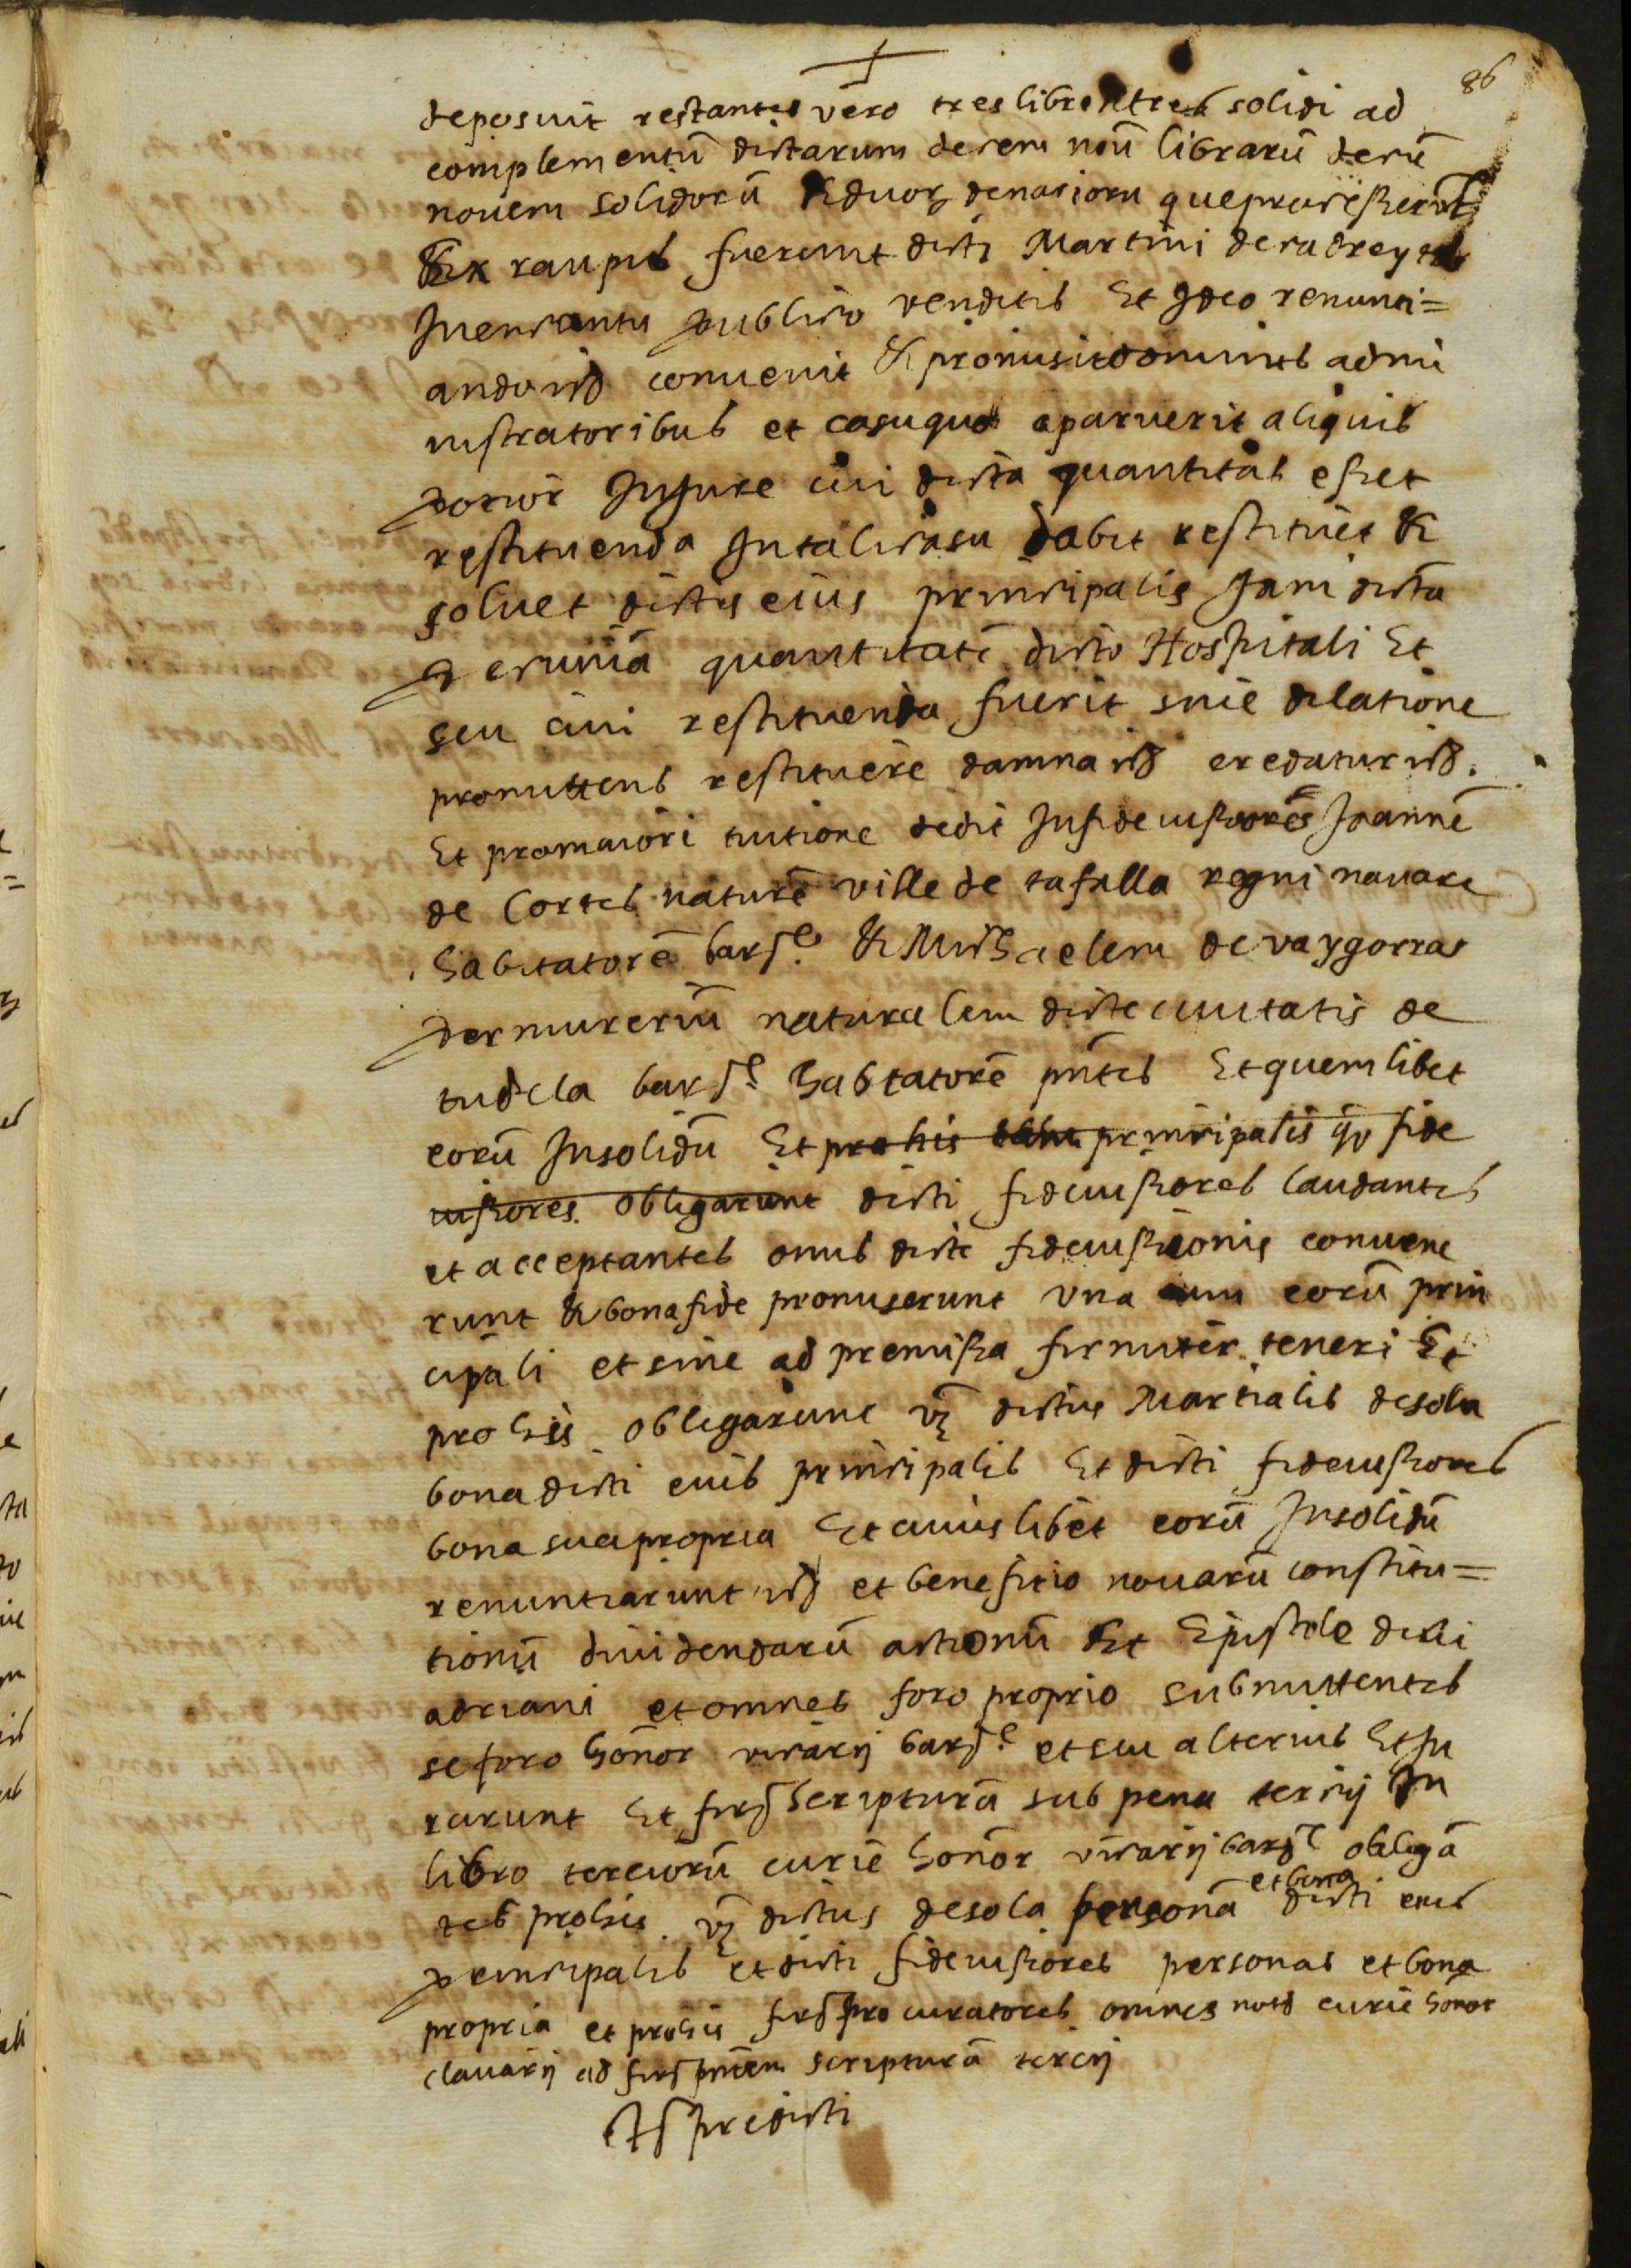 86
deposuit restantes vero tres libre et tres solidi ad
complementū dictarum decem nou̅ librarū decē
novem solidorū & duorꝫ denariorū que processerūt
Ex raupis fuerunt dicti Martini de
Inencantu publico venditis Et Ideo renunci=
ando cō convenit & promisit dominis admi
nistratoribus et casuquo aparuerit aliquis
potior Injure cui dicta quantitas esset
restituenda Intali casu dabit restituet &
solvet dictus eius principalis Jam dictā
pecuniā quantitatē dicto Hospitali Et
seu cui restituenda fuerit sine dilatione
promittens restituere damna credatur
Et promaiori tuitione dedit Infideiussores Joannē
de Cortes naturē ville de tafalla regni navare
habitatorē barͫ & Michaelem de vaygorras
permurerium naturalem dicte civitatis de
tudela bar habtatorē pn̄tes Et quemlibet
eorū Insolidū Et pro his principalis qͣ fide
iussores obligarunt dicti fideiussores laudantes
et acceptantes onus dicte fideiussionis convene
runt & bona fide promiserunt una cum eorū prin
cipali et sine ad premissa firmiter teneri Et
pro his obligarunt vꝫ dictus Martialis desola
bona dicti eius principalis Et dicti fideiussores
bona sua propria Et cuius libet eorū Insolidū
renuntiarunt et benefitio novarū constitu=
tionū dividendarū actionū Et Epistole divi
adriani et omnes foro proprio submittentes
se foro honor vicarij bar et seu alterius Et Ju
rarunt Et scripturā sub pena tercij In
libro terciorū curie honor vicarij bar obligā
tes pro his vꝫ dictus desola personā et bona dicti eius
principalis et dicti fideiussores personas et bona
propria et pro his procuratores omnes curie honor
clavarij ad pn̄tem scripturā tercij
predicti